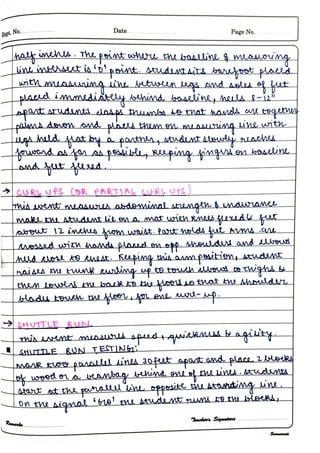 Expt. No.
Date
Page No.
half inches. The point where the baseline & measuring
line intersect is '0' point. Student sits barefoot placed
with measuring line between legs and soles of feet
placed immediately behind baseline, heels 8-12"
apart students clasps thumbs so that hands are together
palms down and places them on measuring line with
legs held flat by a partner, student slowly reaches
forward as far as possible, keeping fingers on baseline
and feet flexed.
→ CURL UPS (OR PARTIAL CURL UPS)
This event measures abdominal strength & endurance
make the student lie on a mat with knees flexed & feet
about 12 inches from waist. Part holds feet Arms are
crossed with hands placed on opp. shoulders and elbows
held close to chest. Keeping this arm position, student
raises the trunk curling up to touch elbows to thighs &
then lowers the back to the floor so that the shoulder
blades touch the floor, for one curl-up.
→ SHUTTLE RUN
This event measures speed, quickness & agility.
▪ SHUTTLE RUN TESTING:
Mark two parallel lines 30 feet apart and place 2 blocks
of wood or a beanbag behind one of the lines. Students
start at the parallel line opposite the starting line.
On the signal 'Go!' the student runs to the blocks,
Remarks
Teacher Signature